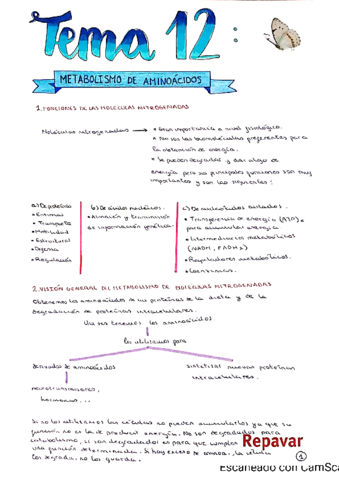 Tema 12:
METABOLISMO DE AMINOÁCIDOS
1. FUNCIONES DE LAS MOLÉCULAS NITROGENADAS
Moléculas nitrogenadas → • Gran importancia a nivel fisiológico.
• No son las biomoléculas preferentes para
la obtención de energía.
• Se pueden degradar y dar algo de
energía pero sus principales funciones son muy
importantes y son las siguientes:
a) De péptidos
• Enzimas
• Transporte
• Movilidad
• Estructural
• Defensa
• Regulación
b) De ácidos nucleicos.
• Almacén y transmisión
de información genética.
c) De nucleótidos aislados.
• Transferencia de energía (ATP)
para acumular energía
• Intermediarios metabólicos
(NADH, FADH₂)
• Reguladores metabólicos.
• Coenzimas.
2. VISIÓN GENERAL DEL METABOLISMO DE MOLÉCULAS NITROGENADAS
Obtenemos los aminoácidos de las proteínas de la dieta y de la
degradación de proteínas intracelulares.
Una vez tenemos los aminoácidos
los utilizamos para
derivados de aminoácidos
sintetizar nuevas proteínas
intracelulares.
neurotransmisores,
hormonas...
Si no los utilizamos las células no pueden acumularlos ya que su
función no es la de producir energía. No son degradados para
catabolismo, si son degradados es para que cumplan
una función determinada. Si hay exceso de aminoa. la célula
los degrada, no los guarda.
Repavar
1
Escaneado con CamSc